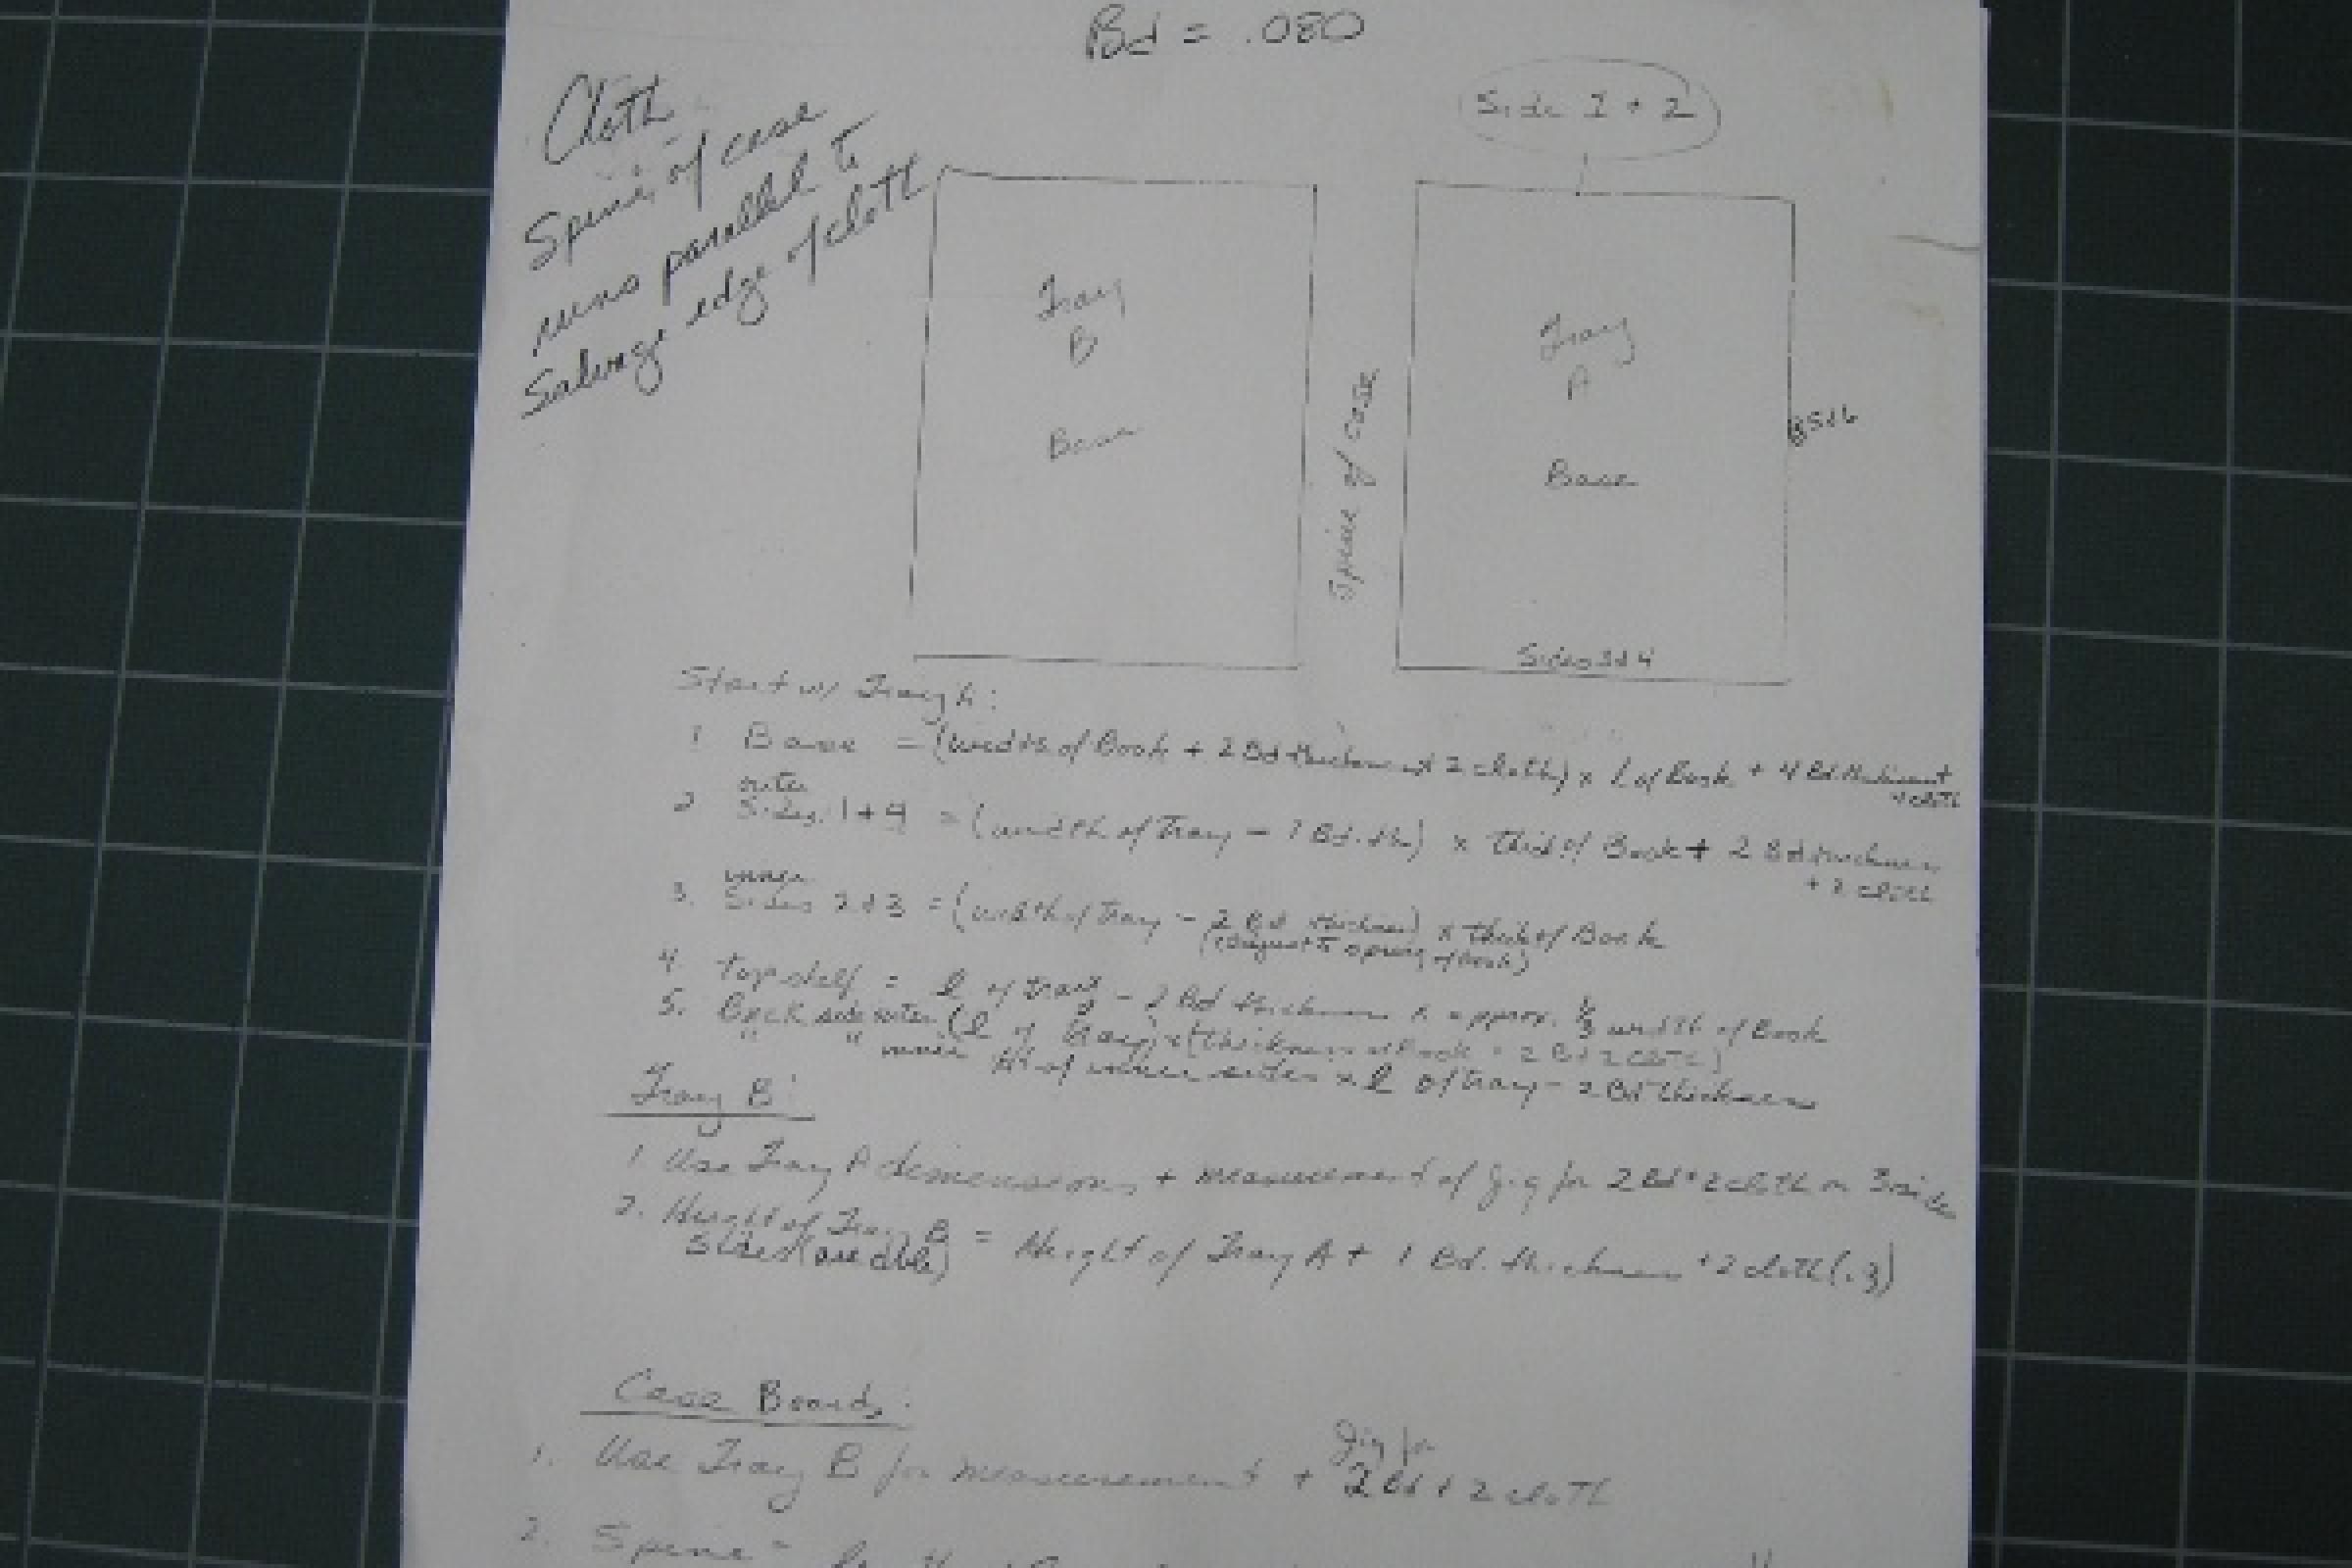 Bd = .080
Cloth
Spine of case
runs parallel to
Salvage edge of cloth
Side 1 + 2
Tray
B
Base
Spine of case
Tray
A
Base
5+6
Sides 3+4
Start w/ Tray A:
1 Base = (width of Book + 2 Bd thickness + 2 cloth) x l of Book + 4 Bd thickness + 4 cloth
2 outer Sides 1+4 = (width of Tray - 1 Bd. th) x thick of Book + 2 Bd thickness
+ 2 cloth
3. inner Sides 2+3 = (width of Tray - 2 Bd thickness) x thick of Book
(adjust to spring of book)
4. top shelf = l of tray - 2 Bd thickness x approx. 1/3 width of Book
5. Back side outer (l of tray) x (thickness of Book + 2 Bd 2 cloth)
" " inner Ht of inner sides x l of tray - 2 Bd thickness
Tray B:
1. Use Tray A dimensions + measurement of jig for 2 Bd + 2 cloth on 3 sides
2. Height of Tray B = Height of Tray A + 1 Bd. thickness + 2 cloth
Sides (are dble)
Case Boards:
1. Use Tray B for measurement + Jig for 2 Bd + 2 cloth
2. Spine =